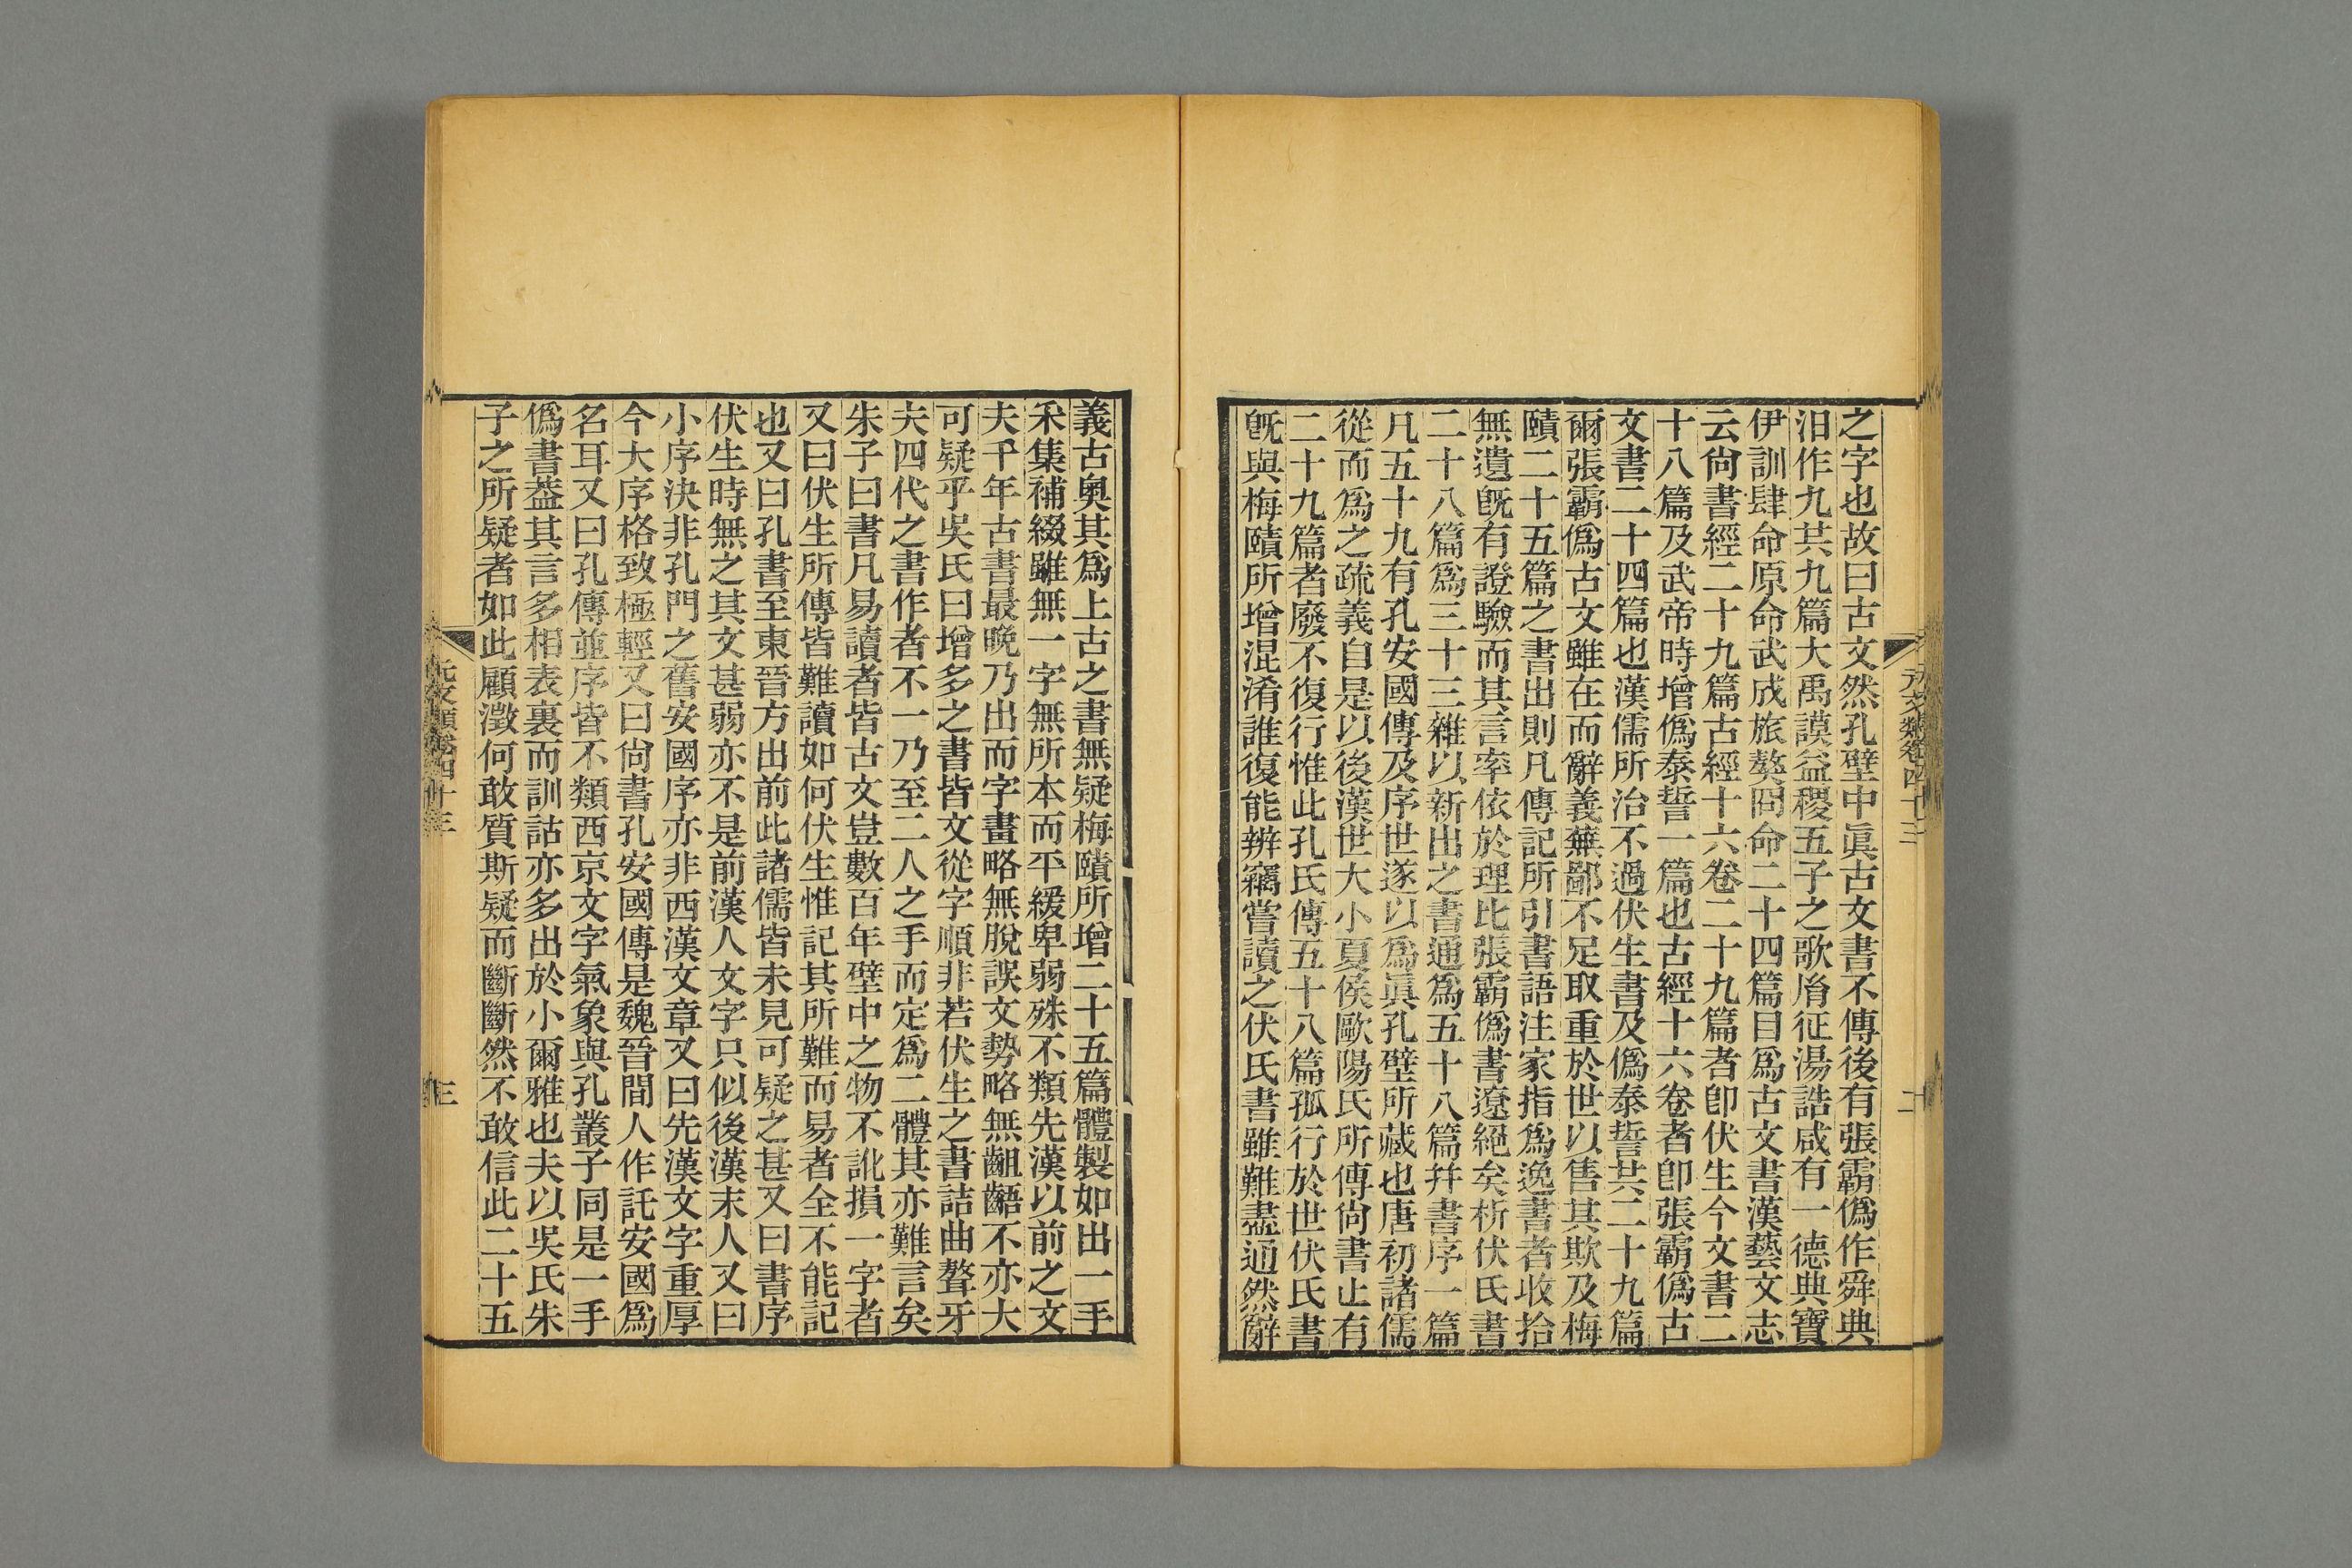 之字也故曰古文然孔壁中眞古文書不傳後有張霸僞作舜典
汨作九其九篇大禹謨益稷五子之歌胤征湯誥咸有一德典寶
伊訓肆命原命武成旅獒冏命二十四篇目爲古文書漢藝文志
云尙書經二十九篇古經十六卷二十九篇者卽伏生今文書二
十八篇及武帝時增僞泰誓一篇也古經十六卷者卽張霸僞古
文書二十四篇也漢儒所治不過伏生書及僞泰誓共二十九篇
爾張霸僞古文雖在而辭義蕪鄙不足取重於世以售其欺及梅
賾二十五篇之書出則凡傳記所引書語注家指爲逸書者收拾
無遺旣有證驗而其言率依於理比張霸僞書遼絕矣析伏氏書
二十八篇爲三十三雜以新出之書通爲五十八篇幷書序一篇
凡五十九有孔安國傳及序世遂以爲眞孔壁所藏也唐初諸儒
從而爲之疏義自是以後漢世大小夏侯歐陽氏所傳尙書止有
二十九篇者廢不復行惟此孔氏傳五十八篇孤行於世伏氏書
旣與梅賾所增混淆誰復能辨竊嘗讀之伏氏書雖難盡通然辭
元文類卷四十三
二
義古奧其爲上古之書無疑梅賾所增二十五篇體製如出一手
釆集補綴雖無一字無所本而平緩卑弱殊不類先漢以前之文
夫千年古書最晚乃出而字畫略無脫誤文勢略無齟齬不亦大
可疑乎吳氏曰增多之書皆文從字順非若伏生之書詰曲聱牙
夫四代之書作者不一乃至二人之手而定爲二體其亦難言矣
朱子曰書凡易讀者皆古文豈數百年壁中之物不訛損一字者
又曰伏生所傳皆難讀如何伏生惟記其所難而易者全不能記
也又曰孔書至東晉方出前此諸儒皆未見可疑之甚又曰書序
伏生時無之其文甚弱亦不是前漢人文字只似後漢末人又曰
小序決非孔門之舊安國序亦非西漢文章又曰先漢文字重厚
今大序格致極輕又曰尙書孔安國傳是魏晉間人作託安國爲
名耳又曰孔傳並序皆不類西京文字氣象與孔叢子同是一手
僞書葢其言多相表裏而訓詁亦多出於小爾雅也夫以吳氏朱
子之所疑者如此顧澂何敢質斯疑而斷斷然不敢信此二十五
元文類卷四十三
三